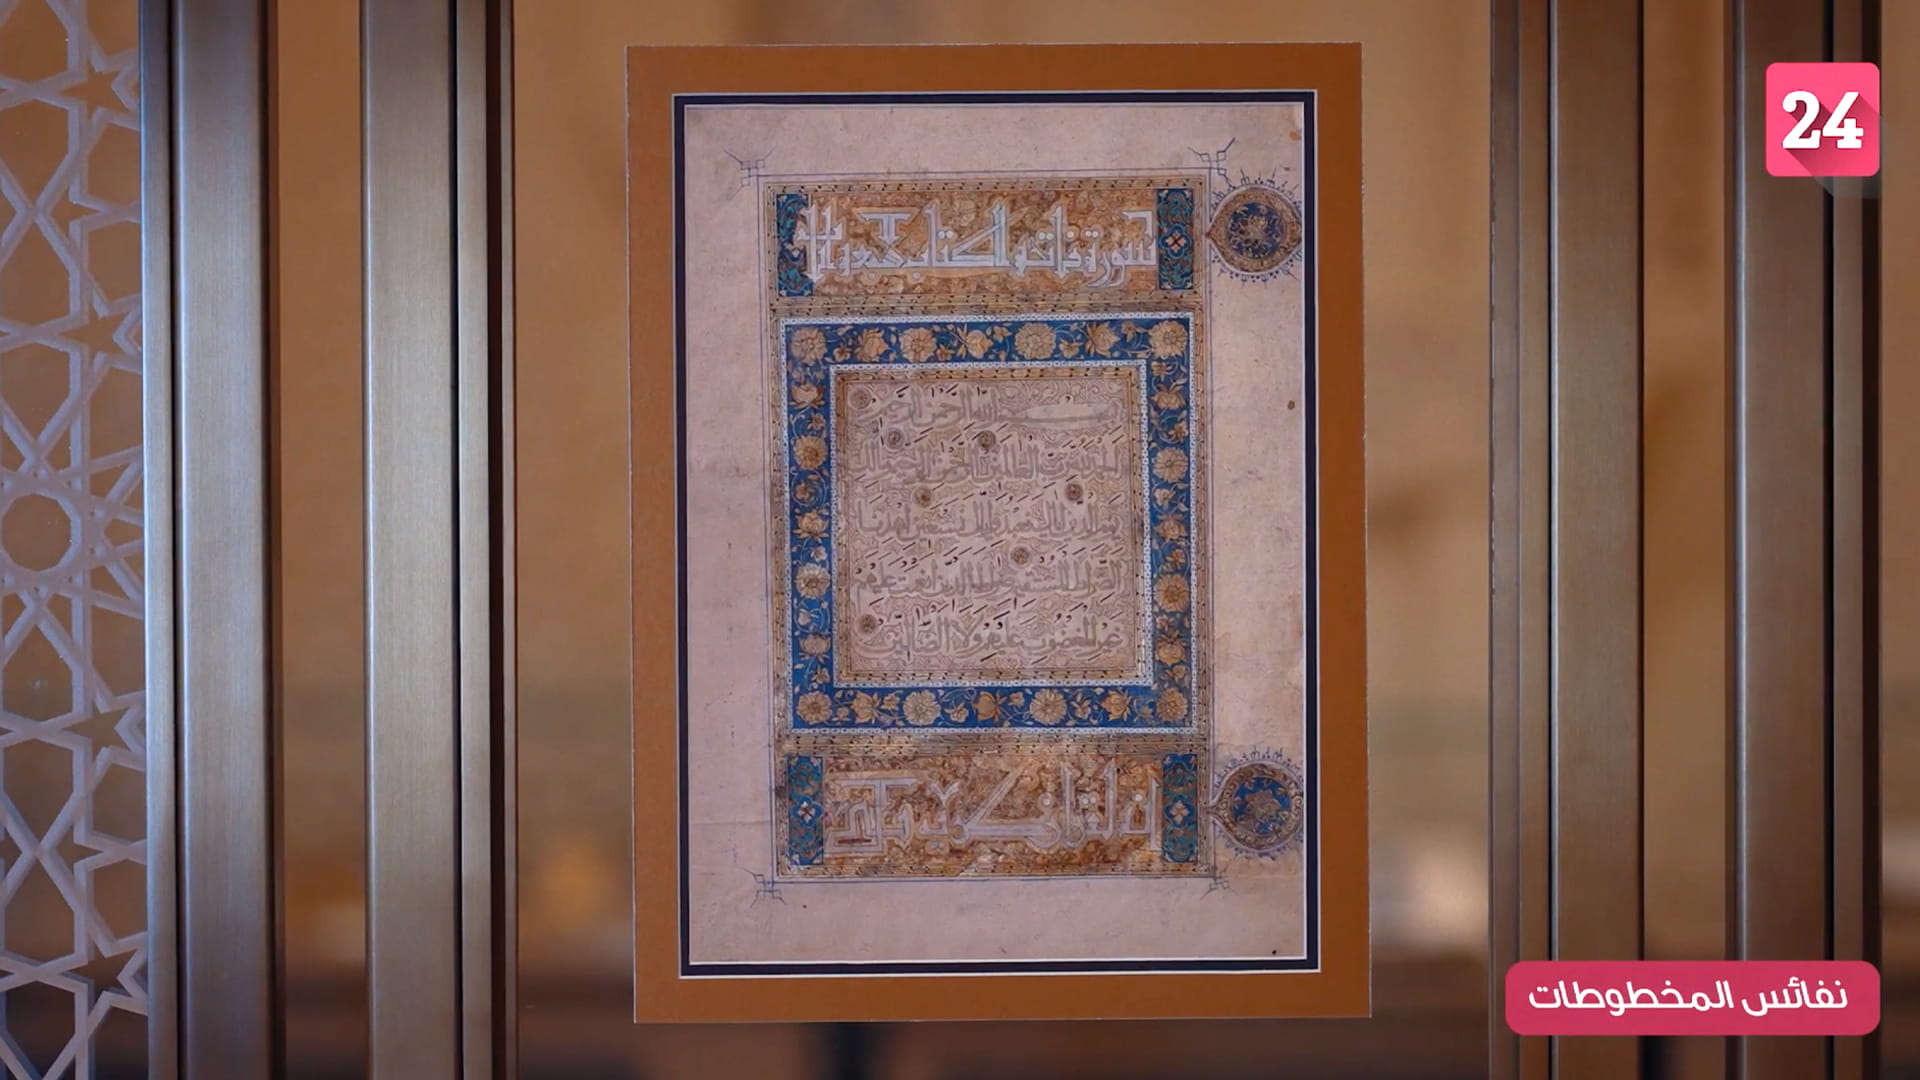 24
سورة فاتحة الكتاب
بسم الله الرحمن الرحيم
الحمد لله رب العالمين الرحمن الرحيم مالك
يوم الدين اياك نعبد واياك نستعين اهدنا
الصراط المستقيم صراط الذين انعمت عليهم
غير المغضوب عليهم ولا الضالين
انه لقران كريم
نفائس المخطوطات